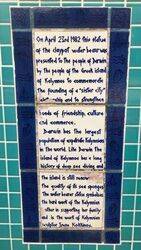 On April 23rd 1982 this statue
of the claypot water bearer was
presented to the people of Darwin
by the people of the Greek island
of Kalymnos to commemorate
the founding of a "sister city"
and to strengthen
bonds of friendship, culture
and commerce.
Darwin has the largest
population of expatriate Kalymnians
in the world. Like Darwin the
island of Kalymnos has a long
history of deep sea diving and
the island is still
the quality of its sea sponges
The water bearer statue symbolises
the hard work of the Kalymnian
in supporting her family
and is the work of Kalymnian
sculptor Irene Kokkinos.